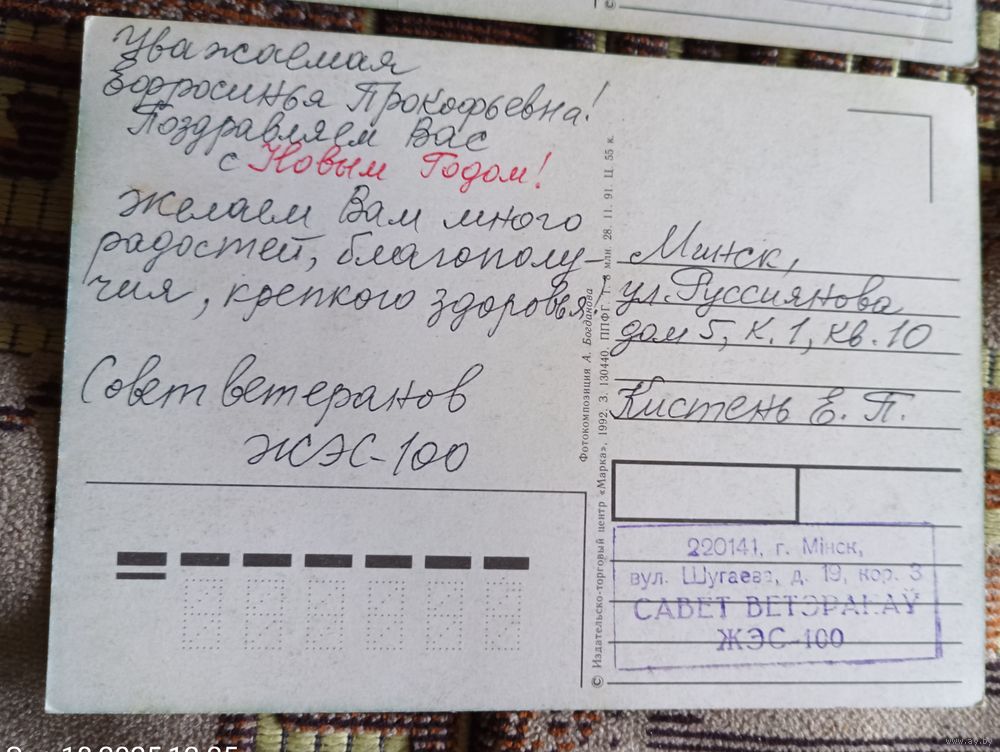 Уважаемая
Ефросинья Прокофьевна!
Поздравляем Вас
с Новым Годом!
Желаем Вам много
радостей, благополу-
чия, крепкого здоровья.
Совет ветеранов
ЖЭС-100
Фотокомпозиция А. Богданова
© Издательско-торговый центр «Марка». 1992. З. 130440. ППФГ. Т. 8 млн. 28. 11. 91. Ц. 55 к.
Минск,
ул. Руссиянова
дом 5, к. 1, кв. 10
Кистень Е. П.
220141, г. Мінск,
вул. Шугаева, д. 19, кор. 3
САВЕТ ВЕТЭРАНАЎ
ЖЭС-100
www.ay.by